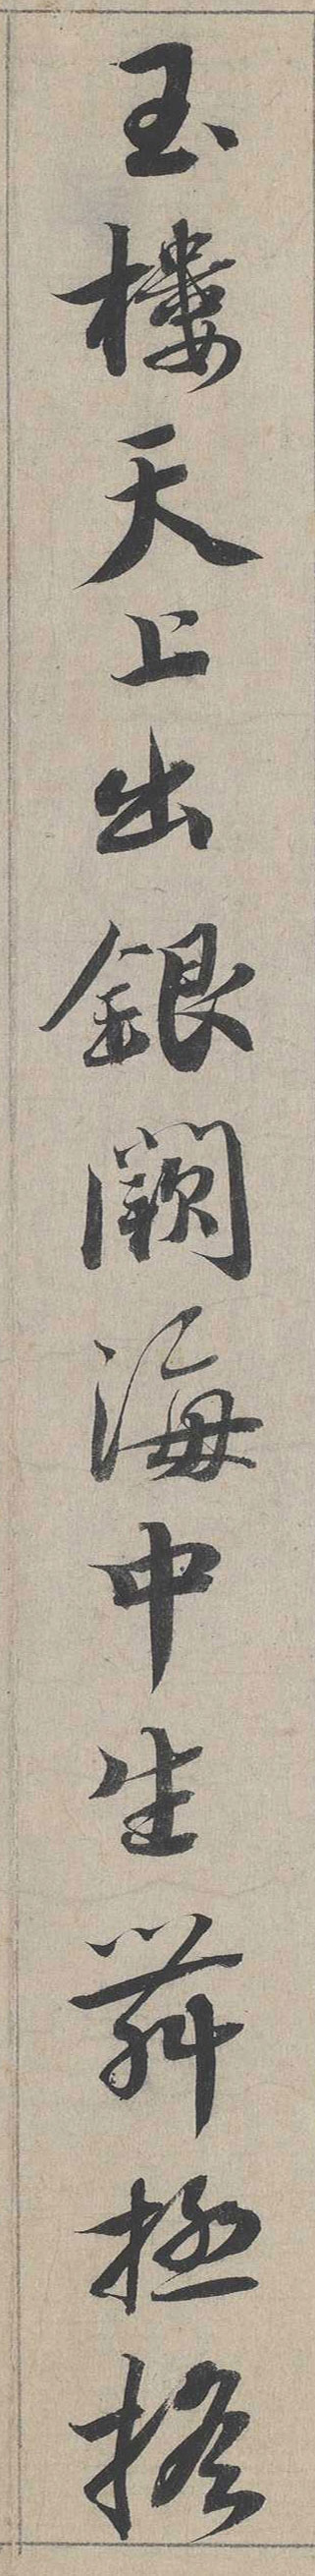 玉樓天上出銀闕海中生舞極